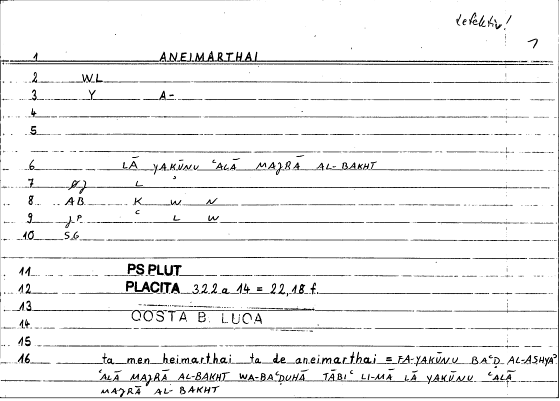 defektiv!
1 ANEIMARTHAI
2 WL
3 Y A-
4
5
6 LĀ YAKŪNU ʿALĀ MAJRĀ AL-BAKHT
7 L ʾ
8 AB K W N
9 J.P. ʿ L W
10 SG
11 PS PLUT
12 PLACITA 322a 14 = 22,18 f.
13
14 QOSTA B. LUCA
15
16 ta men heimarthai ta de aneimarthai = FA-YAKŪNU BAʿḌ AL-ASHYĀʾ
ʿALĀ MAJRĀ AL-BAKHT WA-BAʿḌUHĀ TĀBIʿ LI-MĀ LĀ YAKŪNU ʿALĀ
MAJRĀ AL-BAKHT